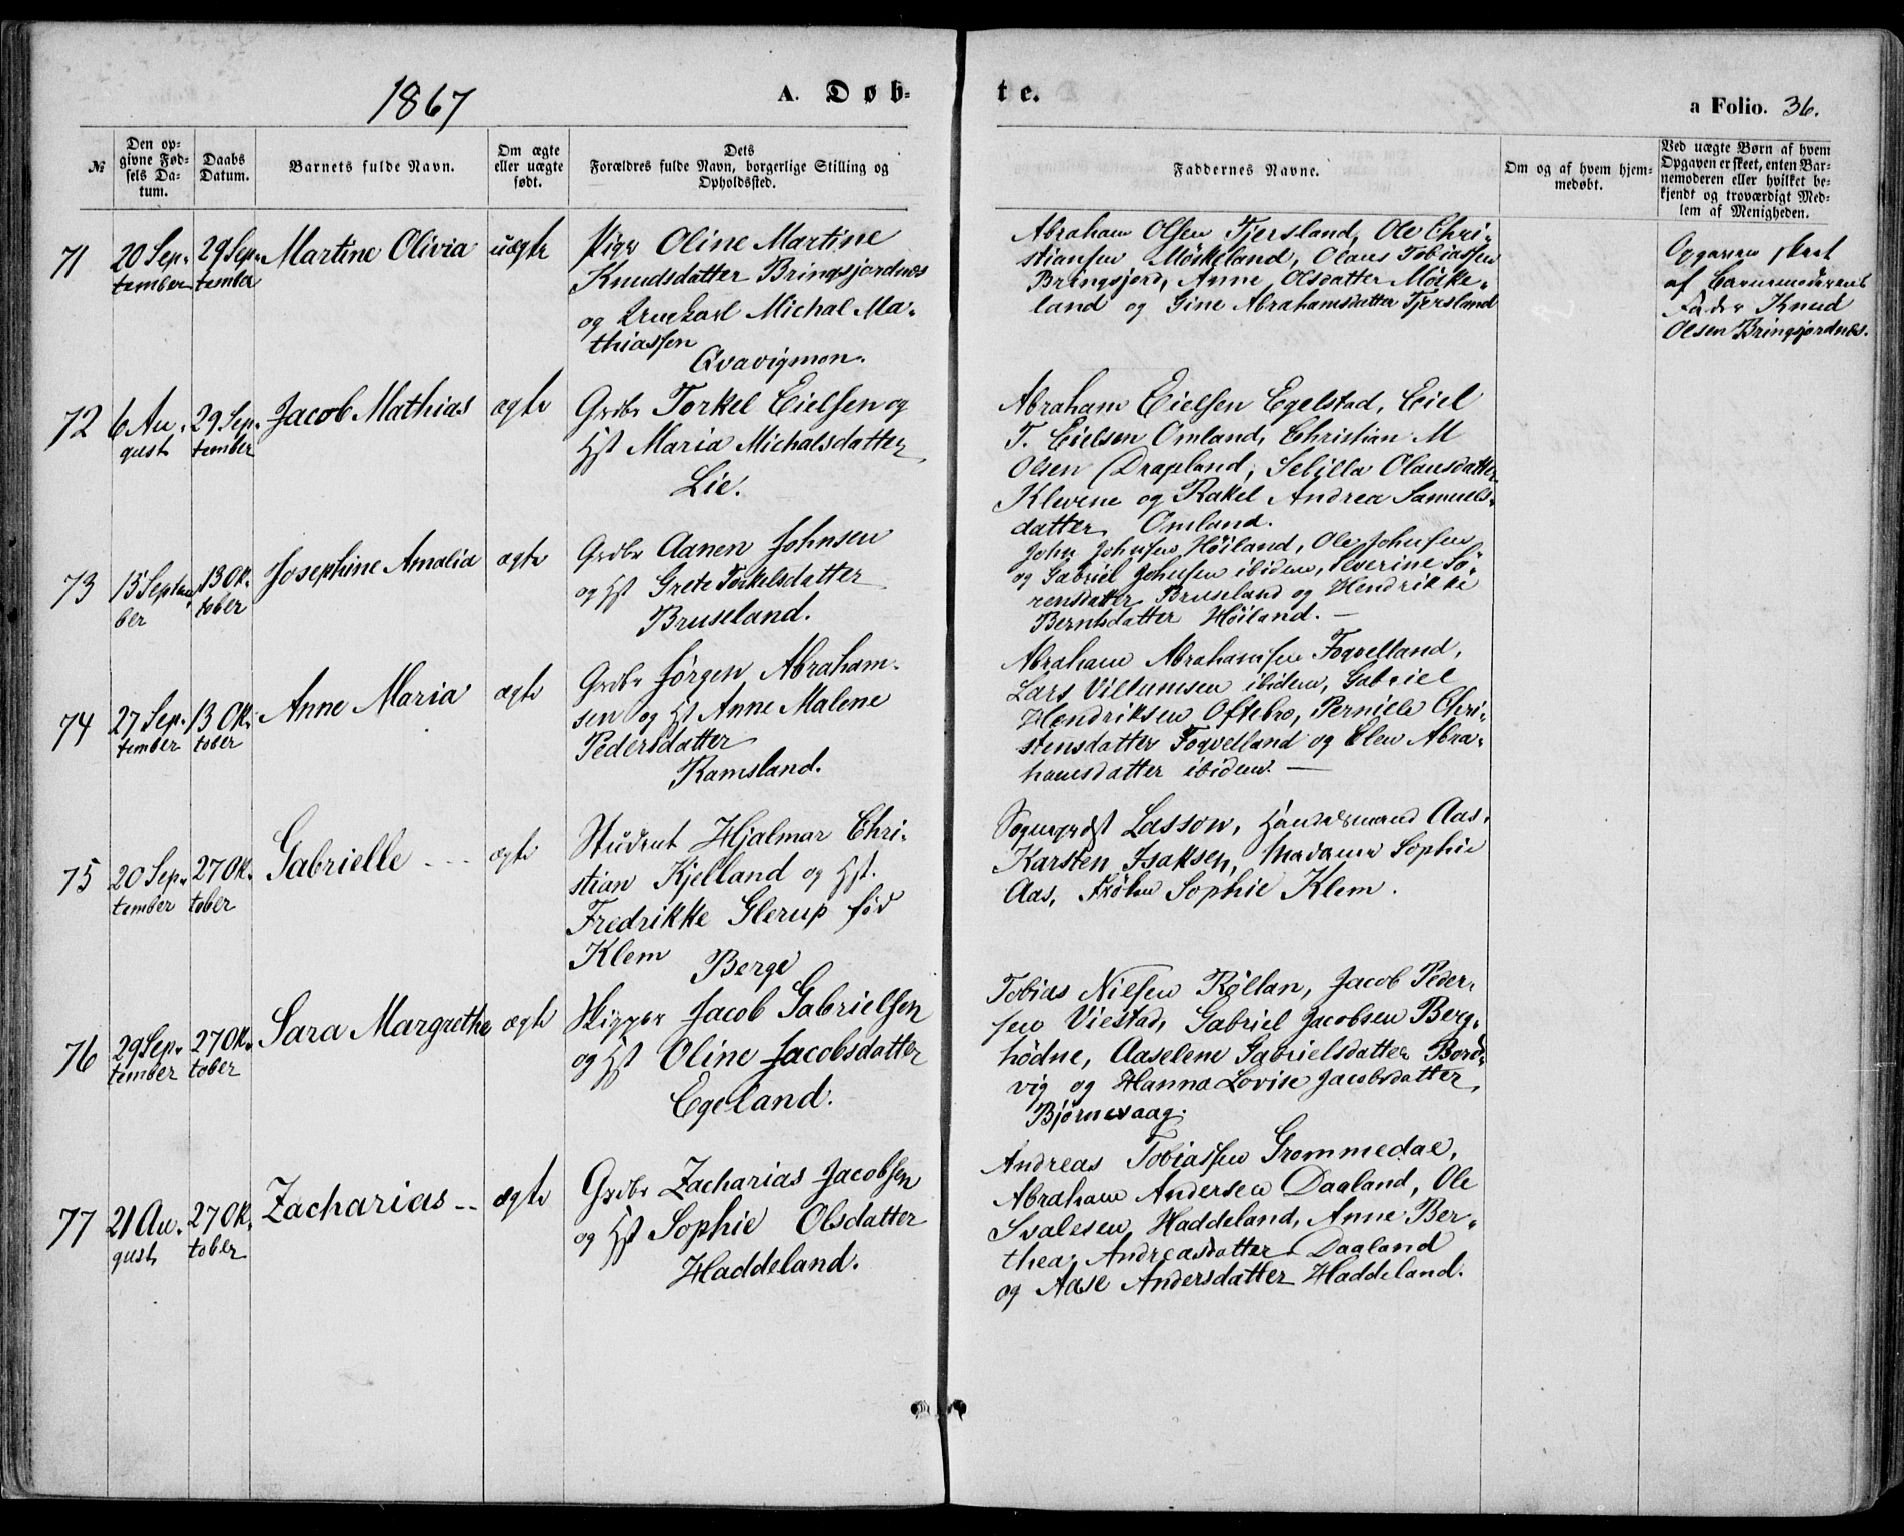 1867
A. Døb-
te.
a Folio. 36.
№
Den op-
givne Fød-
sels Da-
tum.
Daabs
Datum.
Barnets fulde Navn.
Om ægte
eller uægte
født.
Dets
Forældres fulde Navn, borgerlige Stilling og
Opholdssted.
Faddernes Navne.
Om og af hvem hjem-
medøbt.
Ved uægte Børn af hvem
Opgaven er skeet, enten Bar-
nemoderen eller hvilket be-
kjendt og troværdigt Med-
lem af Menigheden.
71
20 Sep-
tember
29 Sep-
tember
Martine Olivia
uægte
Pige Oline Martine
Knudsdatter Bringsjordnes
og Ungkarl Michal Ma-
thiassen
Qvavigmon.
Abraham Olsen Tjersland, Ole Chri-
stiansen Møskeland, Olaus Tobiassen
Bringsjord, Anne Olsdatter Møske-
land og Gine Abrahamsdatter Tjersland
Opgaven skeet
af Barnemoderens
Fader Knud
Olsen Bringsjordnes.
72
6 Au-
gust
29 Sep-
tember
Jacob Mathias
ægte
Grdbr Torkel Eielsen og
Hst Maria Michalsdatter
Lie.
Abraham Eielsen Egelstad, Eiel
T. Eielsen Omland, Christian M
Olsen Drapland, Sebilla Olausdatter
Klevene og Rakel Andrea Samuels-
datter Omland.
73
15 Septem-
ber
13 Ok-
tober
Josephine Amalia
ægte
Grdbr Aanen Johnsen
og Hst Grete Torkelsdatter
Bruseland.
John Johnsen Höiland, Ole Johnsen
og Gabriel Johnsen ibidem, Severine Sö-
rensdatter Bruseland og Hendrikke
Berntsdatter Höiland. —
74
27 Sep-
tember
13 Ok-
tober
Anne Maria
ægte
Grdbr Jørgen Abraham-
sen og Hst Anne Malene
Pedersdatter
Ramsland.
Abraham Abrahamsen Foqvelland,
Lars Villumsen ibidem, Gabriel
Hendriksen Oftebro, Pernille Chri-
stensdatter Foqvelland og Elen Abra-
hamsdatter ibidem. —
75
20 Sep-
tember
27 Ok-
tober
Gabrielle
ægte
Student Hjalmar Chri-
stian Kjelland og Hst.
Fredrikke Glerup fød
Klem
Berge
Sogneprdst Lasson, Handelsmand Aas,
Karsten Isaksen, Madame Sophie
Aas, Frøken Sophie Klem.
76
29 Sep-
tember
27 Ok-
tober
Sara Margrethe
ægte
Skipper Jacob Gabrielsen
og Hst Oline Jacobsdatter
Egeland.
Tobias Nielsen Röllan, Jacob Peder-
sen Viestad, Gabriel Jacobsen Berg-
hödne, Aaselene Gabrielsdatter Bord-
vig og Hanna Lovise Jacobsdatter
Bjørnevaag.
77
21 Au-
gust
27 Ok-
tober
Zacharias --
ægte
Grdbr Zacharias Jacobsen
og Hst Sophie Olsdatter
Haddeland.
Andreas Tobiassen Grommedal,
Abraham Andersen Daaland, Ole
Svalesen Haddeland, Anne Ber-
thea Andreasdatter Daaland
og Aase Andersdatter Haddeland.